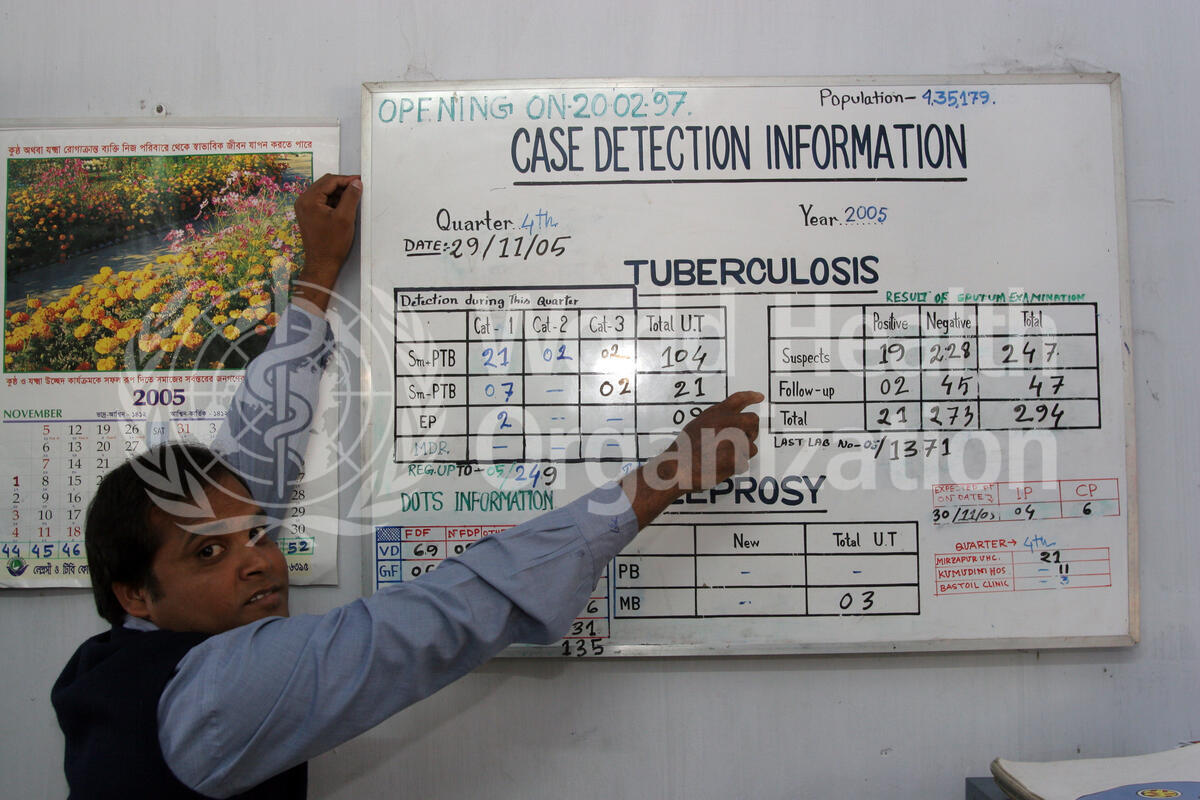 কুষ্ঠ অথবা যক্ষ্মা রোগাক্রান্ত ব্যক্তি নিজ পরিবারে থেকে স্বাভাবিক জীবন যাপন করতে পারে
কুষ্ঠ ও যক্ষ্মা উচ্ছেদ কার্যক্রমকে সফল রূপ দিতে সমাজের সর্বস্তরের জনগণের
2005
NOVEMBER ভাদ্র-আশ্বিন-১৪১২ আশ্বিন-কার্তিক-১৪১২
5 12 19 26 SAT 31 3
6 13 20 27
7 14 21
1 8 15 28
2 9 16 29
3 10 17 30
4 11 18
44 45 46 52
লেপ্রসী ও টিবি
OPENING ON-20-02-97.
Population- 4,35,179.
CASE DETECTION INFORMATION
Quarter 4th
Year 2005
DATE:-29/11/05
TUBERCULOSIS
Detection during This Quarter
Cat-1 Cat-2 Cat-3 Total U.T
Sm+PTB 21 02 02 104
Sm-PTB 07 - 02 21
EP 2 - -
MDR. - -
REG. UP TO-05/249
RESULT OF SPUTUM EXAMINATION
Positive Negative Total
Suspects 19 228 247.
Follow-up 02 45 47
Total 21 273 294
LAST LAB No-05/1371
DOTS INFORMATION
FDF NFDP
VD 69
GF
6
31
135
LEPROSY
New Total U.T
PB - -
MB - 03
ON DATE IP CP
30/11/05 04 6
QUARTER→ 4th
MIRZAPUR UHC. 21
KUMUDINI HOS - 11
BASTOIL CLINIC - 3
World Health
Organization